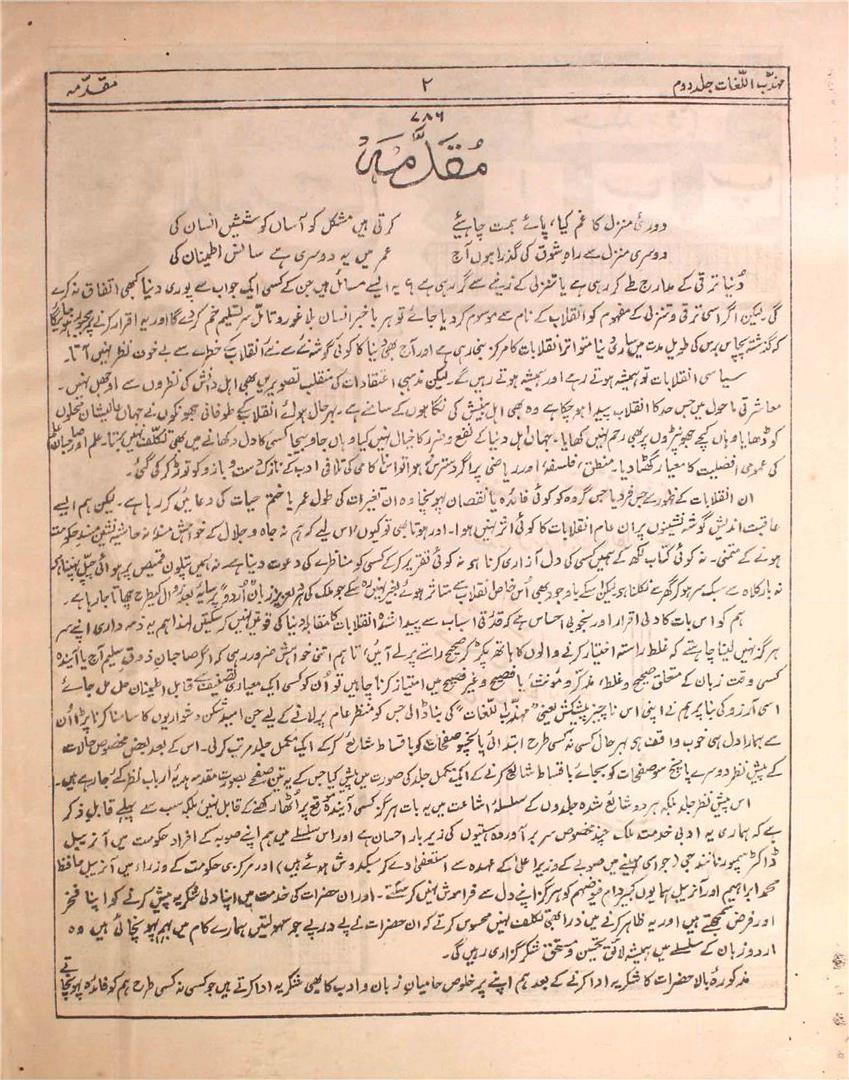 مہذّب اللّغات جلد دوم
۲
مقدّمہ
۷۸۶
مُقدَّمہ
دوریٔ منزل کا غم کیا، پائے ہمت چاہیے
کرتی ہیں مشکل کو آساں کوششیں انسان کی
دوسری منزل سے راہِ شوق کی گذرا ہوں آج
عمر میں یہ دوسری ہے سانس اطمینان کی
دُنیا ترقی کے مدارج طے کر رہی ہے یا تنزلی کے زینے سے گر رہی ہے؟ یہ ایسے مسائل ہیں جن کے کسی ایک جواب سے پوری دنیا کبھی اتفاق نہ کرے
گی لیکن اگر اسی ترقی و تنزلی کے مفہوم کو انقلاب کے نام سے موسوم کر دیا جائے تو ہر باخبر انسان بلا غور و تامّل سرِ تسلیم خم کر دے گا اور یہ اقرار کرنے پر مجبور ہو جائیگا
کہ گذشتہ پچاس برس کی طویل مدت میں ساری دنیا متواتر انقلابات کا مرکز بنی رہی ہے اور آج بھی دنیا کا کوئی گوشہ نئے سے نئے انقلاب کے خطرے سے بے خوف نظر نہیں آتا۔
سیاسی انقلابات تو ہمیشہ ہوتے رہے اور ہمیشہ ہوتے رہیں گے۔ لیکن مذہبی اعتقادات کی منقلب تصویریں بھی اہلِ دانش کی نظروں سے اوجھل نہیں۔
معاشرتی ماحول میں جس حد کا انقلاب پیدا ہو چکا ہے وہ بھی اہلِ بینش کی نگاہوں کے سامنے ہے۔ بہر حال ہوائے انقلاب کے طوفانی جھونکوں نے جہاں عالیشان محلوں
کو ڈھایا وہاں کچے جھونپڑوں پر بھی رحم نہیں کھایا۔ جہاں اہلِ دنیا کے نفع و ضرر کا خیال نہیں کیا وہاں جا و بیجا کسی کا دل دکھانے میں بھی تکلّف نہیں برتا۔ علم اور صاحبانِ علم
کی عمومی افضلیت کا معیار گھٹا دیا۔ منطق، فلسفہ، اور ریاضی پر اگر دسترس نہ ہوا تو اس ناکامی کی تلافی ادب کے نازک دست و بازو کو توڑ کر کی گئی۔
ان انقلابات کے ظہور سے جس فرد یا جس گروہ کو کوئی فائدہ یا نقصان پہونچا وہ ان تغیرات کی طولِ عمر یا ختمِ حیات کی دعائیں کر رہا ہے۔ لیکن ہم ایسے
عاقبت اندیش گوشہ نشینوں پر ان عام انقلابات کا کوئی اثر نہیں ہوا۔ اور ہوتا بھی تو کیوں؟ اس لیے کہ ہم نہ جاہ و جلال کے خواہش مند نہ حاشیہ نشینِ مسندِ حکومت
ہونے کے متمنی۔ نہ کوئی کتاب لکھ کے ہمیں کسی کی دل آزاری کرنا ہو نہ کوئی تقریر کرکے کسی کو مناظرے کی دعوت دینا ہے۔ نہ ہمیں پتلون قمیص پر ہوائی چپل پہننا ہے
نہ بار کلاہ سے سبک سر ہو کر گھر سے نکلنا ہو لیکن اسکے باوجود بھی اُس خاص انقلاب سے متاثر ہوئے بغیر نہیں رہ سکے جو ملک کی ہر دلعزیز زبانِ "اُردو" پر سایۂ بعدِ زوال کیطرح چھاتا جا رہا ہے۔
ہم کو اس بات کا دلی اقرار اور بخوبی احساس ہے کہ قدرتی اسباب سے پیدا شدہ انقلابات کا مقابلہ دنیا کی قوتیں نہیں کر سکتیں لہٰذا ہم یہ ذمہ داری اپنے سر
ہرگز نہیں لینا چاہتے کہ غلط راستہ اختیار کرنے والوں کا ہاتھ پکڑ کر صحیح راستے پر لے آئیں، تاہم اتنی خواہش ضرور رہی کہ اگر صاحبانِ ذوقِ سلیم آج یا آیندہ
کسی وقت زبان کے متعلق صحیح و غلط، مذکر و مؤنث، یا فصیح و غیر فصیح میں امتیاز کرنا چاہیں تو اُن کو کسی ایک معیاری تصنیف سے قابلِ اطمینان حل مل جائے
اسی آرزو کی بنا پر ہم نے اپنی اس ناچیز پیشکش یعنی "مہذّب اللغات" کی بنا ڈالی جس کو منظرِ عام پر لانے کے لیے جن امید شکن دشواریوں کا سامنا کرنا پڑا اُن
سے ہمارا دل ہی خوب واقف ہی بہر حال کسی نہ کسی طرح ابتدائی پانچسو صفحات کو باقساط شایع کرکے ایک مکمل جلد مرتب کر لی۔ اس کے بعد بعض مخصوص حالات
کے پیش نظر دوسرے پانچ سو صفحات کو بجائے باقساط شایع کرنے کے ایک مکمل جلد کی صورت میں پیش کیا جس کے یہ تین صفحے بصورتِ مقدمہ ہدیۂ اربابِ نظر کئے جا رہے ہیں۔
اس پیش نظر جلد بلکہ ہر دو شائع شدہ جلدوں کے سلسلۂ اشاعت میں یہ بات ہرگز کسی آیندہ موقع پر اُٹھا رکھنے کے قابل نہیں بلکہ سب سے پہلے قابلِ ذکر
ہے کہ ہماری یہ ادبی خدمت ملک چند مخصوص سر بر آوردہ ہستیوں کی زیر بار احسان ہے اور اس سلسلے میں ہم اپنے صوبہ کے افراد حکومت میں آنریبل
ڈاکٹر سمپورنانند جی (جو اسی مہینے میں صوبے کے وزیرِ اعلیٰ کے عہدہ سے استعفیٰ دے کر سبکدوش ہوئے ہیں) اور مرکزی حکومت کے وزراء میں آنریبل حافظ
محمد ابراہیم اور آنریبل ہمایوں کبیر دام فیضہم کو ہرگز اپنے دل سے فراموش نہیں کر سکتے۔ اور ان حضرات کی خدمت میں اپنا دلی شکریہ پیش کرنے کو اپنا فخر
اور فرض سمجھتے ہیں اور یہ ظاہر کرنے میں ذرا بھی تکلّف نہیں محسوس کرتے کہ ان حضرات نے پے در پے جو سہولتیں ہمارے کام میں بہم پہونچائی ہیں وہ
اردو زبان کے سلسلے میں ہمیشہ لائقِ تحسین و مستحقِ شکر گزاری رہیں گی۔
مذکورۂ بالا حضرات کا شکریہ ادا کرنے کے بعد ہم اپنے پر خلوص حامیانِ زبان و ادب کا بھی شکریہ ادا کرتے ہیں جو کسی نہ کسی طرح ہم کو فائدہ پہونچاتے